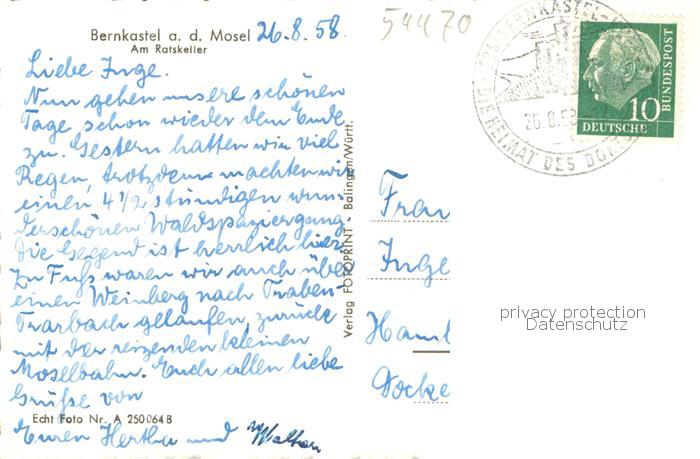 Bernkastel a. d. Mosel 26.8.58.
Am Ratskeller
Liebe Inge.
Nun gehen unsere schönen
Tage schon wieder dem Ende
zu. Gestern hatten wir viel
Regen, trotzdem machten wir
einen 4 1/2 stündigen wun-
derschönen Waldspaziergang.
Die Gegend ist herrlich hier.
Zu Fuß waren wir auch über
einen Weinberg nach Traben-
Trarbach gelaufen, zurück
mit der reizenden kleinen
Moselbahn. Euch allen liebe
Grüße von
Echt Foto Nr. A 250064B
Euren Hertha und
Verlag FOTOPRINT - Balingen/Württ.
54470
BERNKASTEL-
26.8.58
DIE HEIMAT DES
10
DEUTSCHE
BUNDESPOST
Frau
Inge
Hamb
privacy protection
Datenschutz